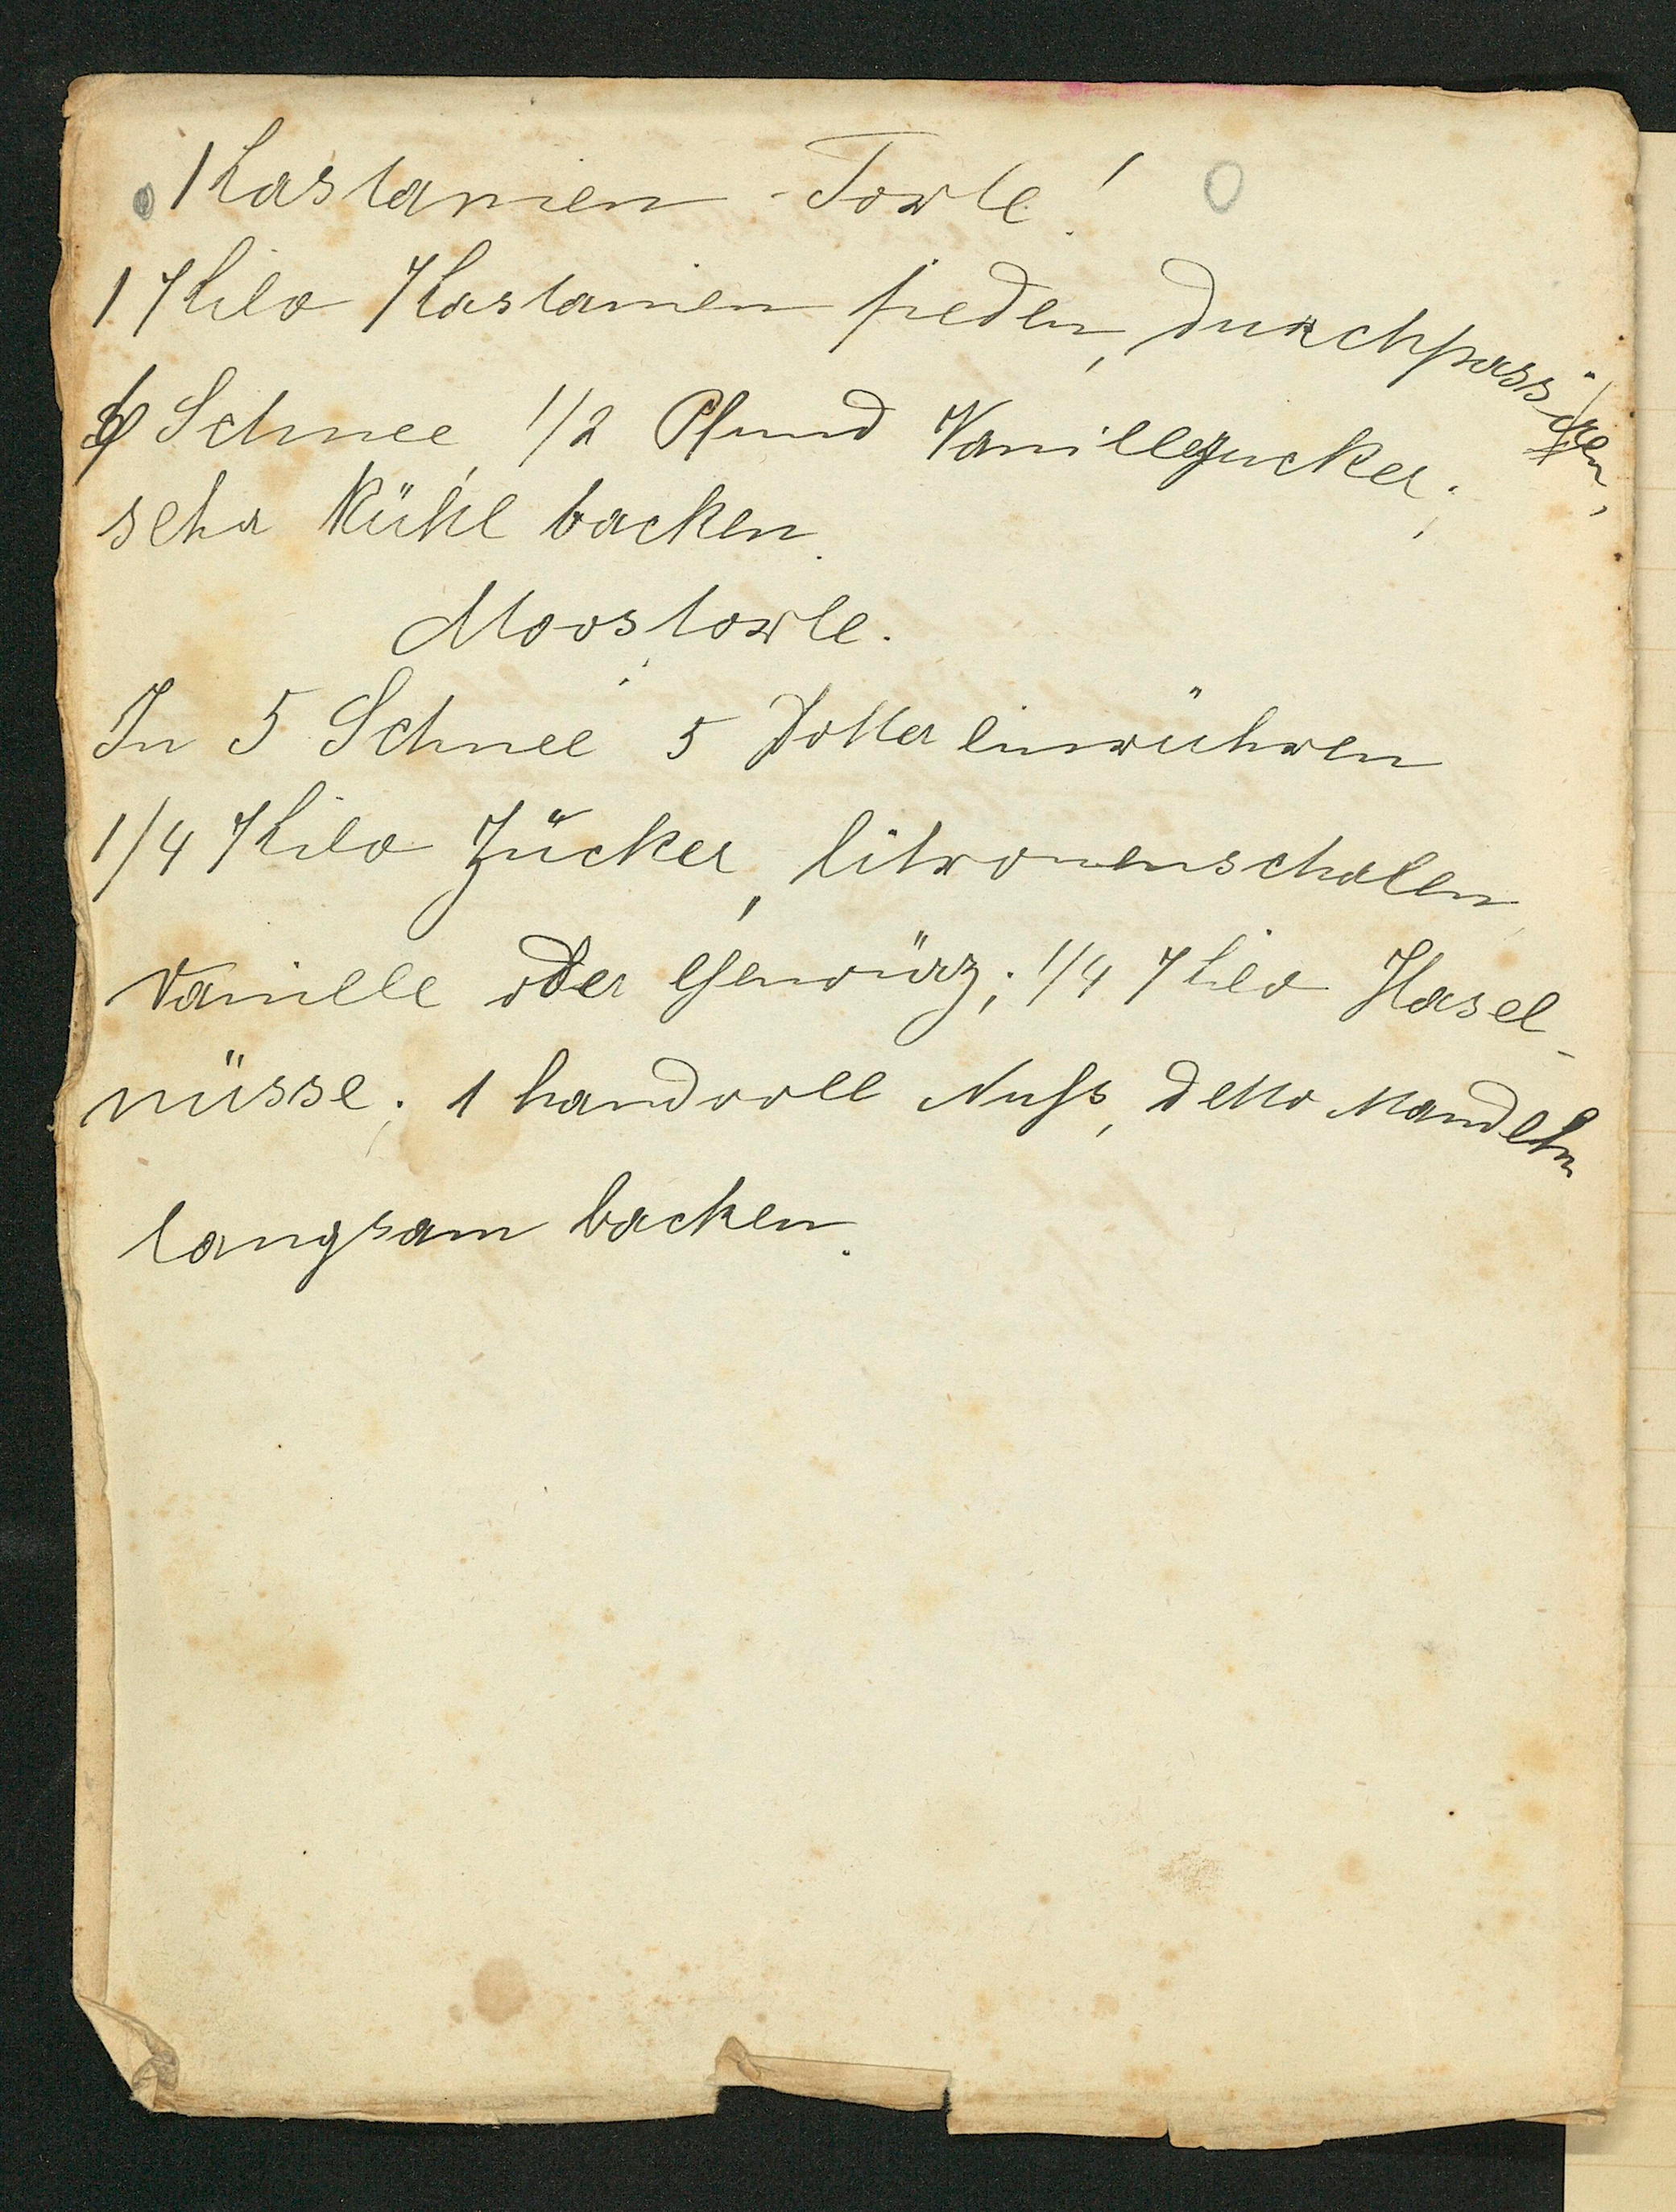 Kastanien-Torte!
1 Kilo Kastanien sieden, durchpassieren,
Schnee, 1/2 Pfund Vanillezucker;
sehr kühl backen.
Moostorte.
In 5 Schnee 5 Dotter einrühren
1/4 Kilo Zücker, Citronenschalen,
Vanille oder Gewürz; 1/4 Kilo Hasel-
nüsse; 1 handvoll Nuß, detto Mandeln
langsam backen.